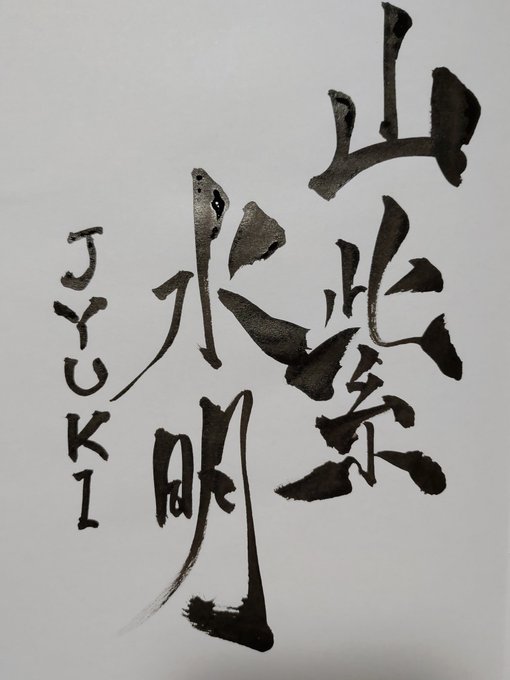 山紫
水明
JYUKI